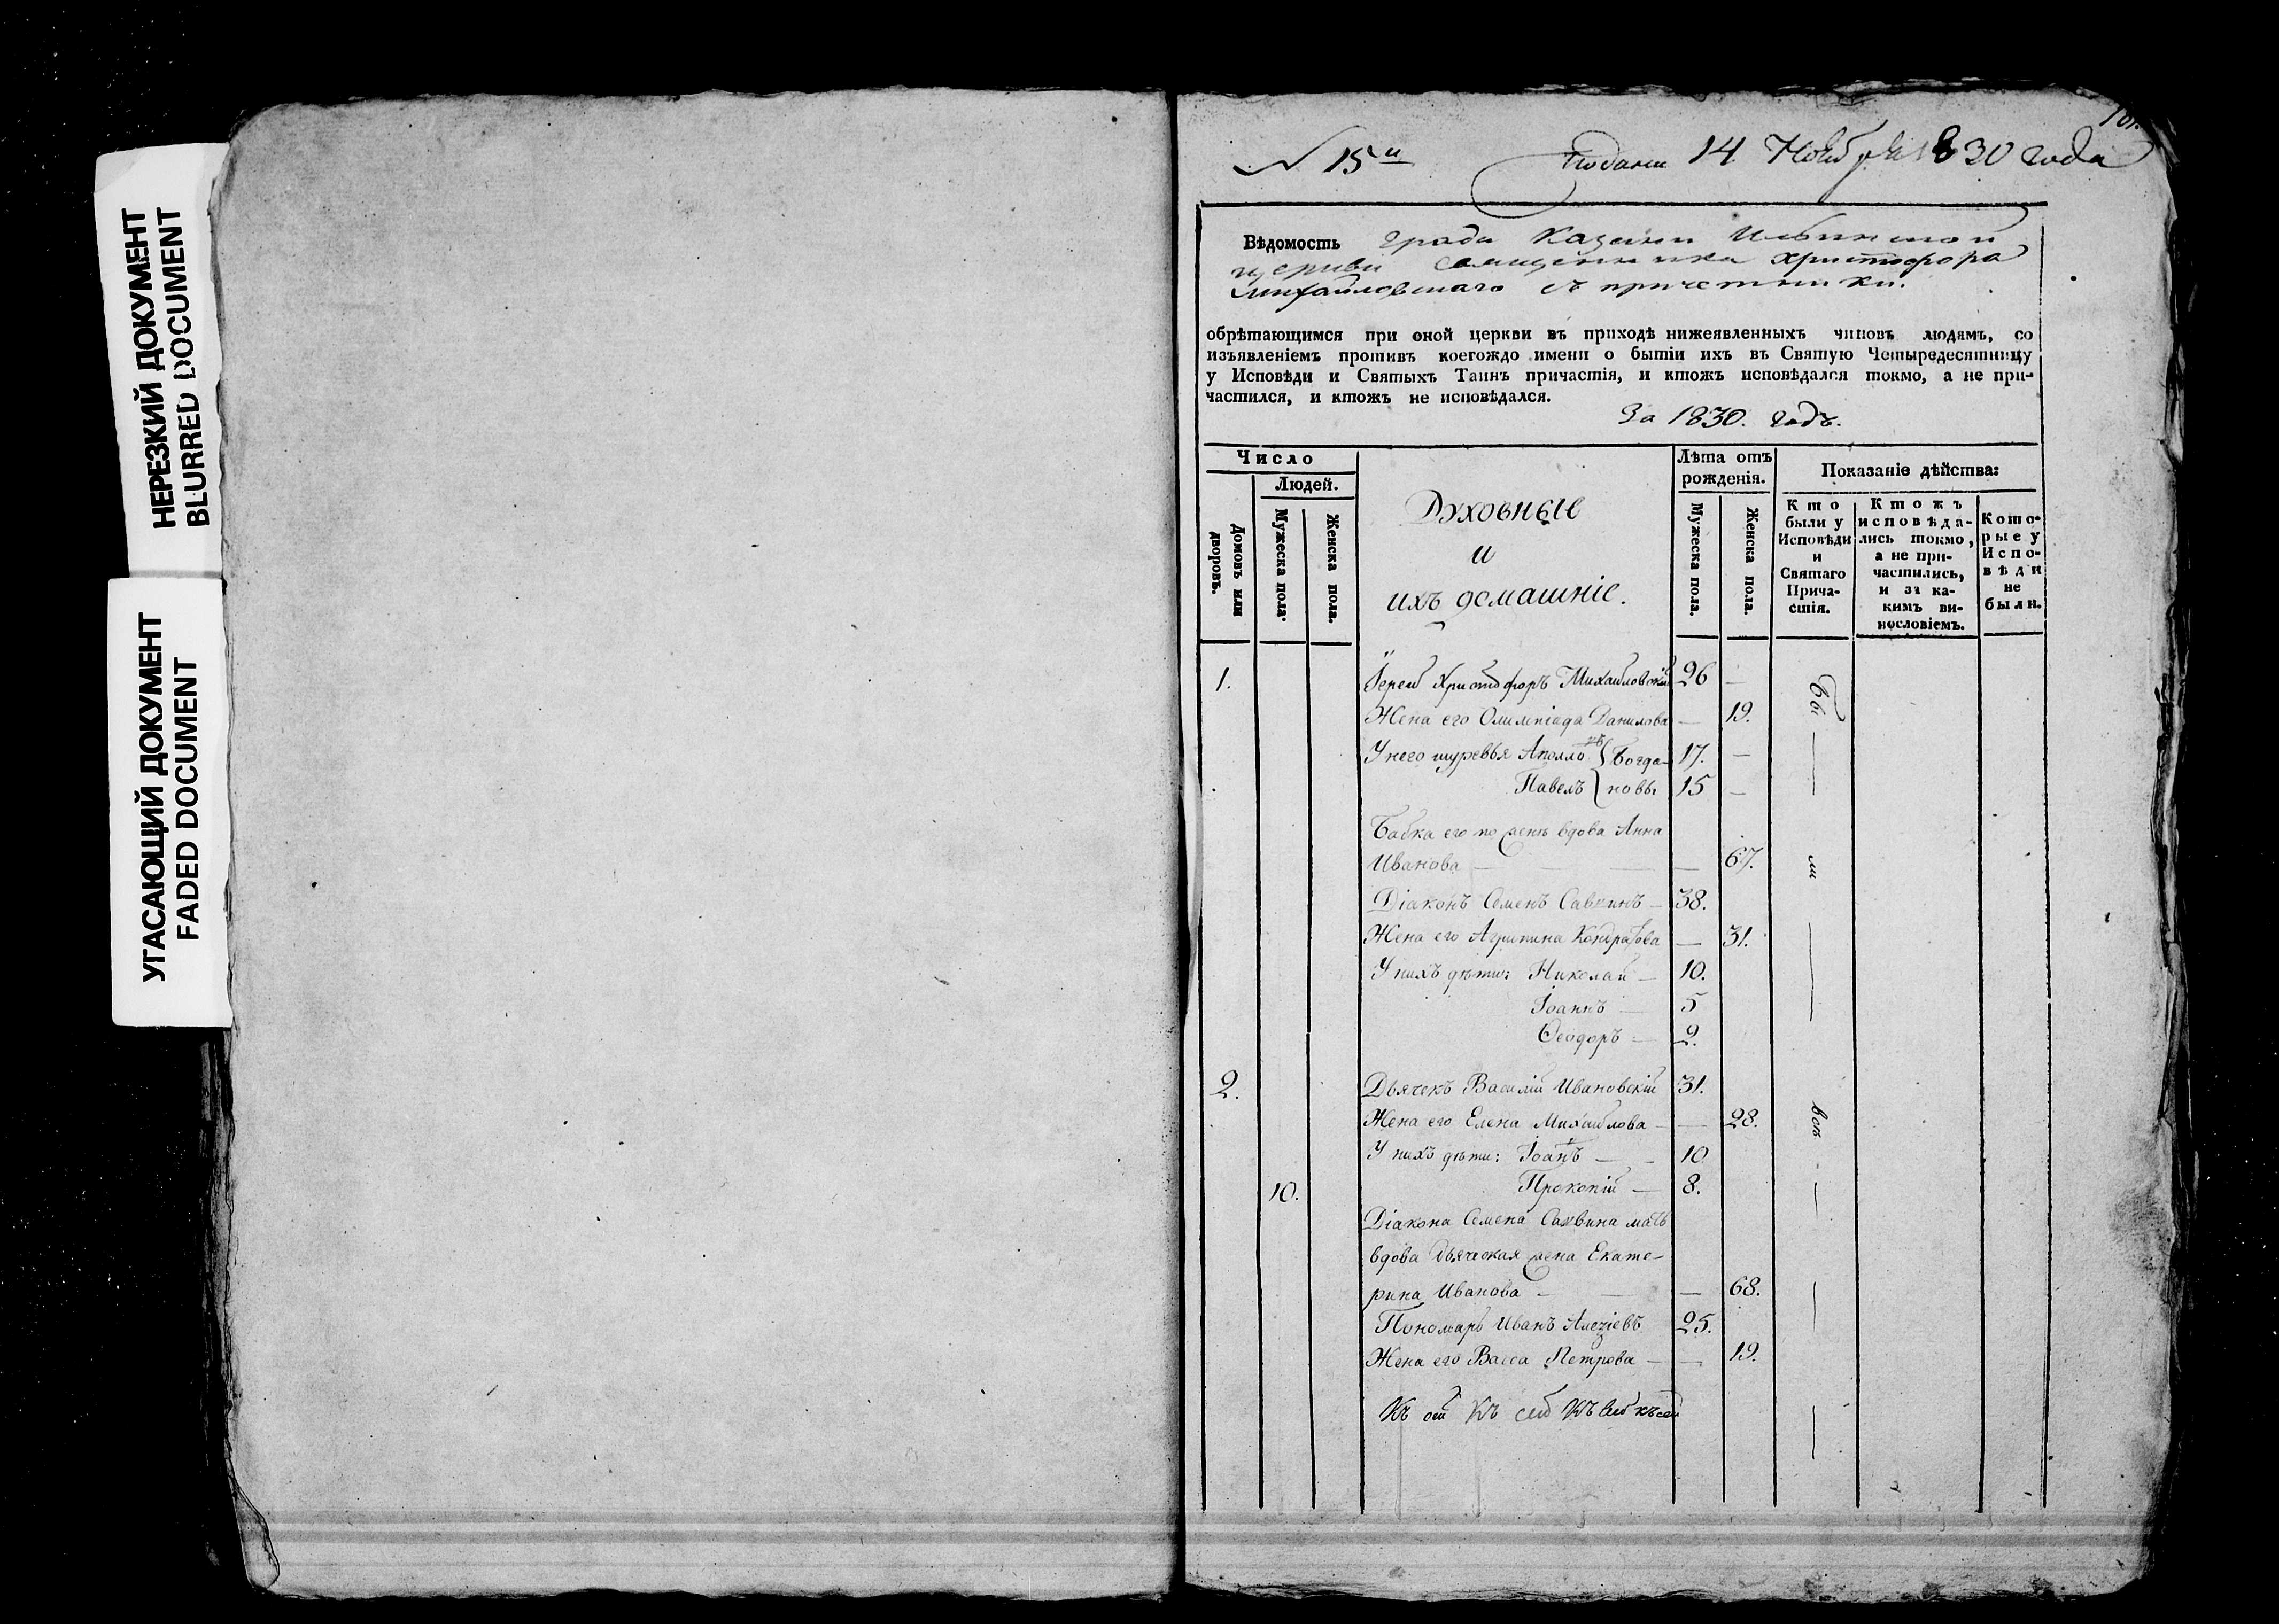 НЕРЕЗКИЙ ДОКУМЕНТ
BLURRED DOCUMENT
УГАСАЮЩИЙ ДОКУМЕНТ
FADED DOCUMENT
101.
№ 15й Подана 14 Ноября 1830 года
Вѣдомость града Казани Ильинской
церкви священника Христофора
Михайловскаго съ причетники.
обрѣтающимся при оной церкви въ приходѣ нижеявленныхъ чиновъ людямъ, со
изъявленіемъ противъ коегождо имени о бытіи ихъ въ Святую Четыредесятницу
у Исповѣди и Святыхъ Таинъ причастія, и ктожъ исповѣдался токмо, а не при-
частился, и ктожъ не исповѣдался.
За 1830. годъ.
Число
Людей.
Домовъ или дворовъ.
Мужеска пола.
Женска пола.
Духовные
и
ихъ домашніе.
Лѣта отъ
рожденія.
Мужеска пола.
Женска пола.
Показаніе дѣйства:
Кто
были у
Исповѣди
и
Святаго
Прича-
стія.
Ктожъ
исповѣда-
лись токмо,
а не при-
частились,
и за ка-
кимъ ви-
нословіемъ.
Кото-
рые у
Испо-
вѣди
не
были.
1. Іерей Христофоръ Михайловскій 26 —
Жена его Олимпіада Данилова — 19.
У него шуревья Аполлонъ } Богда- 17. —
Павелъ } новы 15 —
Бабка его по женѣ вдова Анна
Иванова — — — 67.
Діаконъ Семенъ Саввинъ — 38.
Жена его Агрипина Кондратова — 31.
У нихъ дѣти: Николай — 10.
Іоаннъ — 5
Ѳеодоръ — 2.
2. Дьячекъ Василій Ивановскій 31.
Жена его Елена Михайлова — — 28.
У нихъ дѣти: Іоаннъ — — 10
10. Прокопій — 8.
Діакона Семена Саввина мать
вдова дьяческая жена Екате-
рина Иванова — — — 68.
Пономарь Иванъ Алеѯіевъ 25.
Жена его Васса Петрова — — 19.
Бы
ли
всѣ